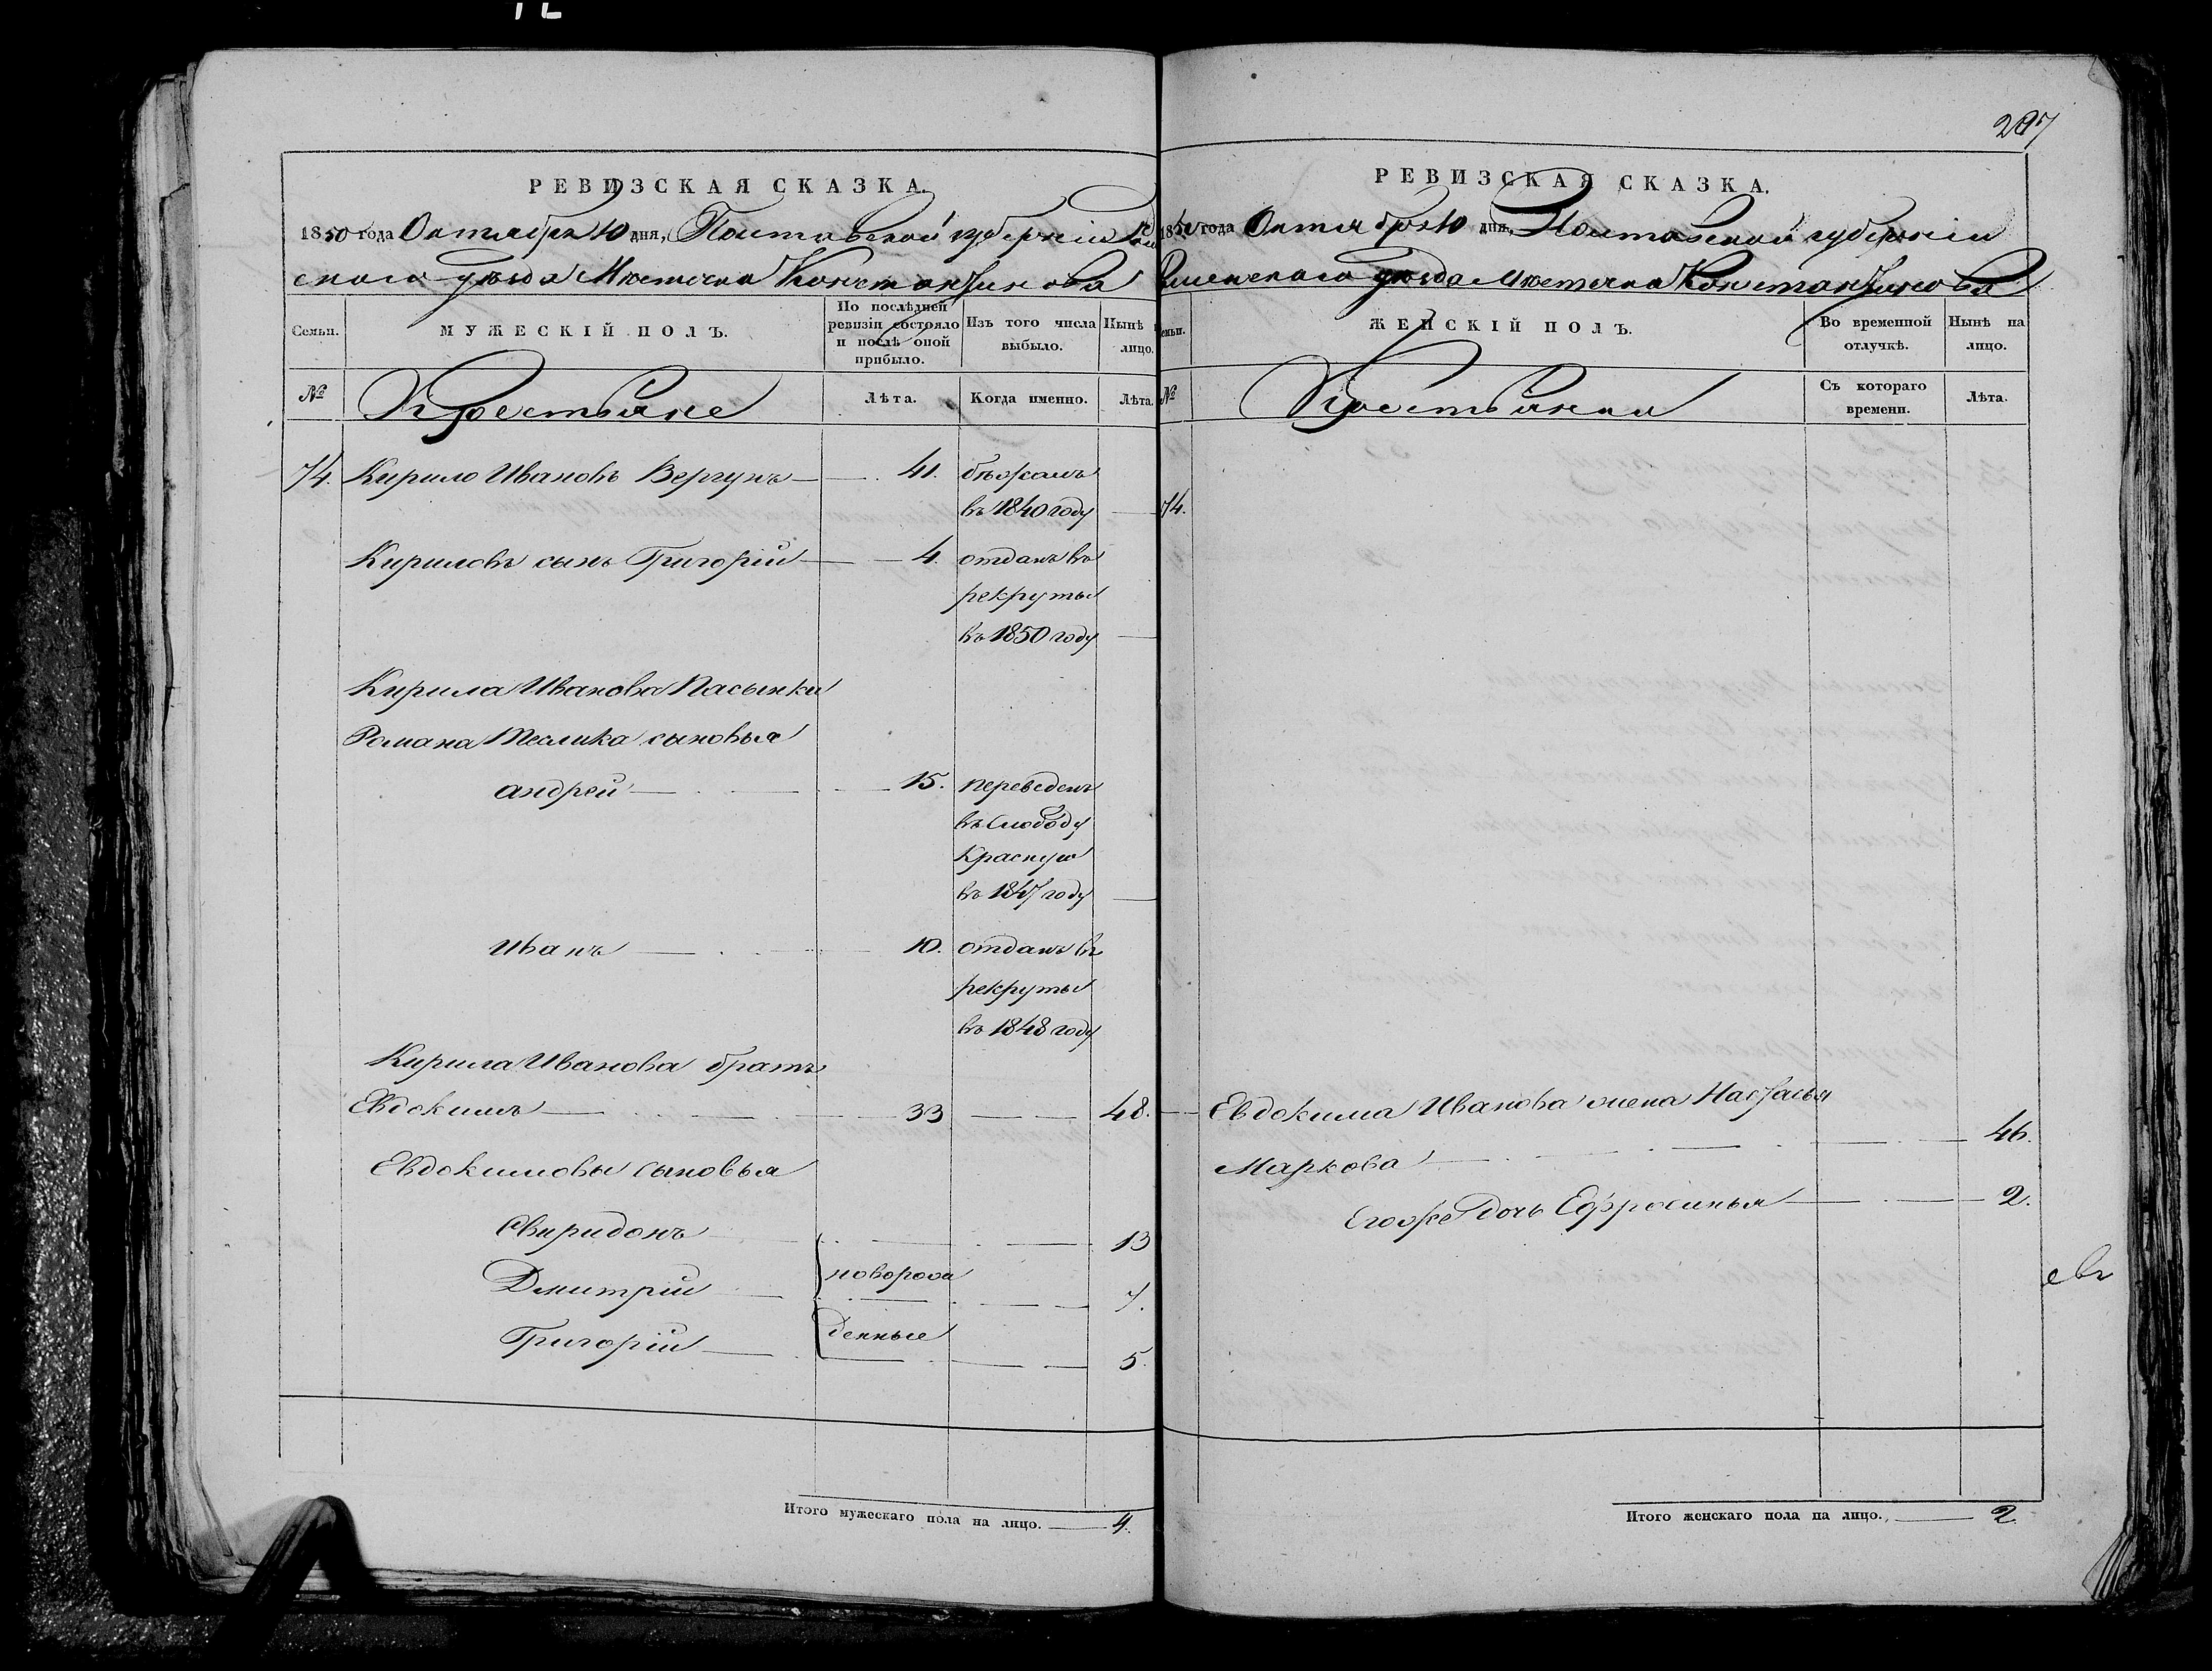 207
РЕВИЗСКАЯ СКАЗКА.
1850 года Октября 10 дня, Полтавской губерніи Ром
скаго уѣзда Мѣстечка Константинова
Семьи.
МУЖЕСКІЙ ПОЛЪ.
По послѣдней ревизіи состояло и послѣ оной прибыло.
Изъ того числа выбыло.
Нынѣ лицо.
№
Крестьяне
Лѣта.
Когда именно.
Лѣта.
74. Кирило Ивановъ Вергунъ — 41. бѣжалъ
въ 1840 году —
Кириловъ сынъ Григорій — 4. отданъ въ
рекруты
въ 1850 году —
Кирила Иванова Пасынки
Романа Теслика сыновья
Андрей — 15. переведенъ
въ Слободу
Красную
въ 1847 году —
Иванъ — 10. отданъ въ
рекруты
въ 1848 году
Кирила Иванова братъ
Евдокимъ — 33 — 48.
Евдокимовы сыновья
Свиридонъ — 13
Дмитрій — новорож — 7.
Григорій — денные — 5.
Итого мужескаго пола на лицо. — 4.
РЕВИЗСКАЯ СКАЗКА.
1850 года Октября 10 дня, Полтавской губерніи
Роменскаго уѣзда Мѣстечка Константинова
Семьи.
ЖЕНСКІЙ ПОЛЪ.
Во временной отлучкѣ.
Нынѣ на лицо.
№
Крестьянки
Съ котораго времени.
Лѣта.
74.
Евдокима Иванова жена Настасья
Маркова — 46.
Егоже дочь Ефросинья — 2.
Итого женскаго пола на лицо. — 2.